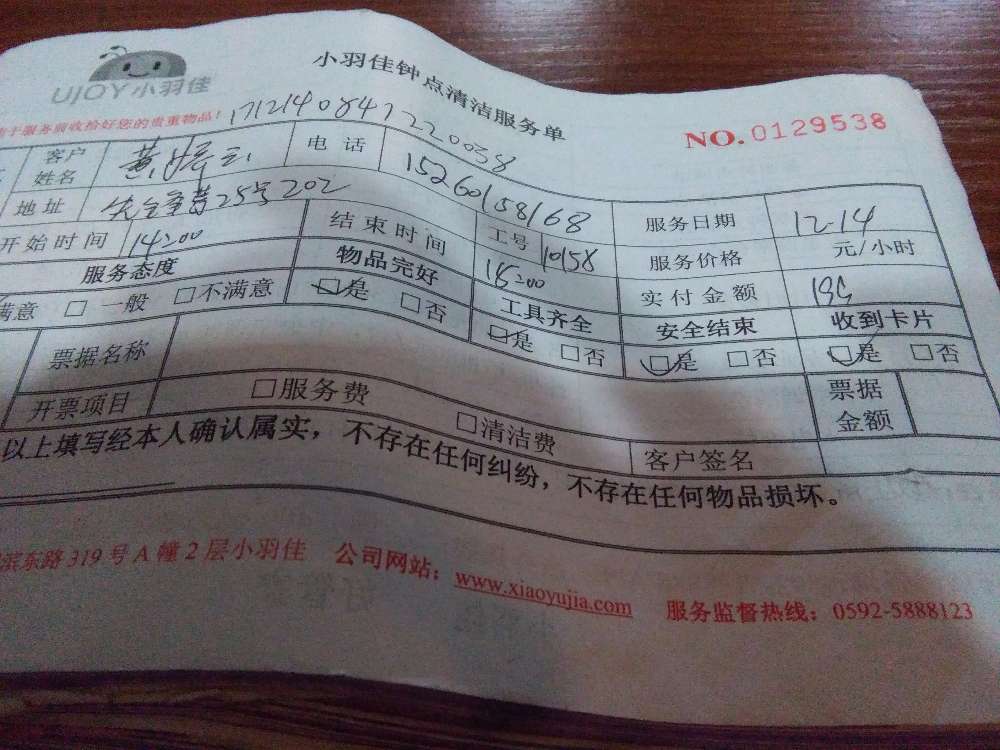 UJOY小羽佳
小羽佳钟点清洁服务单
于服务前收拾好您的贵重物品!
1712140847220038
NO.0129538
客户姓名 黄 电话 15260158168 服务日期 12-14
地址 25号202 工号 10158 服务价格 元/小时
开始时间 14:00 结束时间 18:00 实付金额
服务态度 物品完好 工具齐全 安全结束 收到卡片
满意 □ 一般 □不满意 □是 □否 □是 □否 □是 □否 □是 □否
票据名称 票据金额
开票项目 □服务费 □清洁费 客户签名
以上填写经本人确认属实，不存在任何纠纷，不存在任何物品损坏。
滨东路319号A幢2层小羽佳 公司网站：www.xiaoyujia.com 服务监督热线：0592-5888123